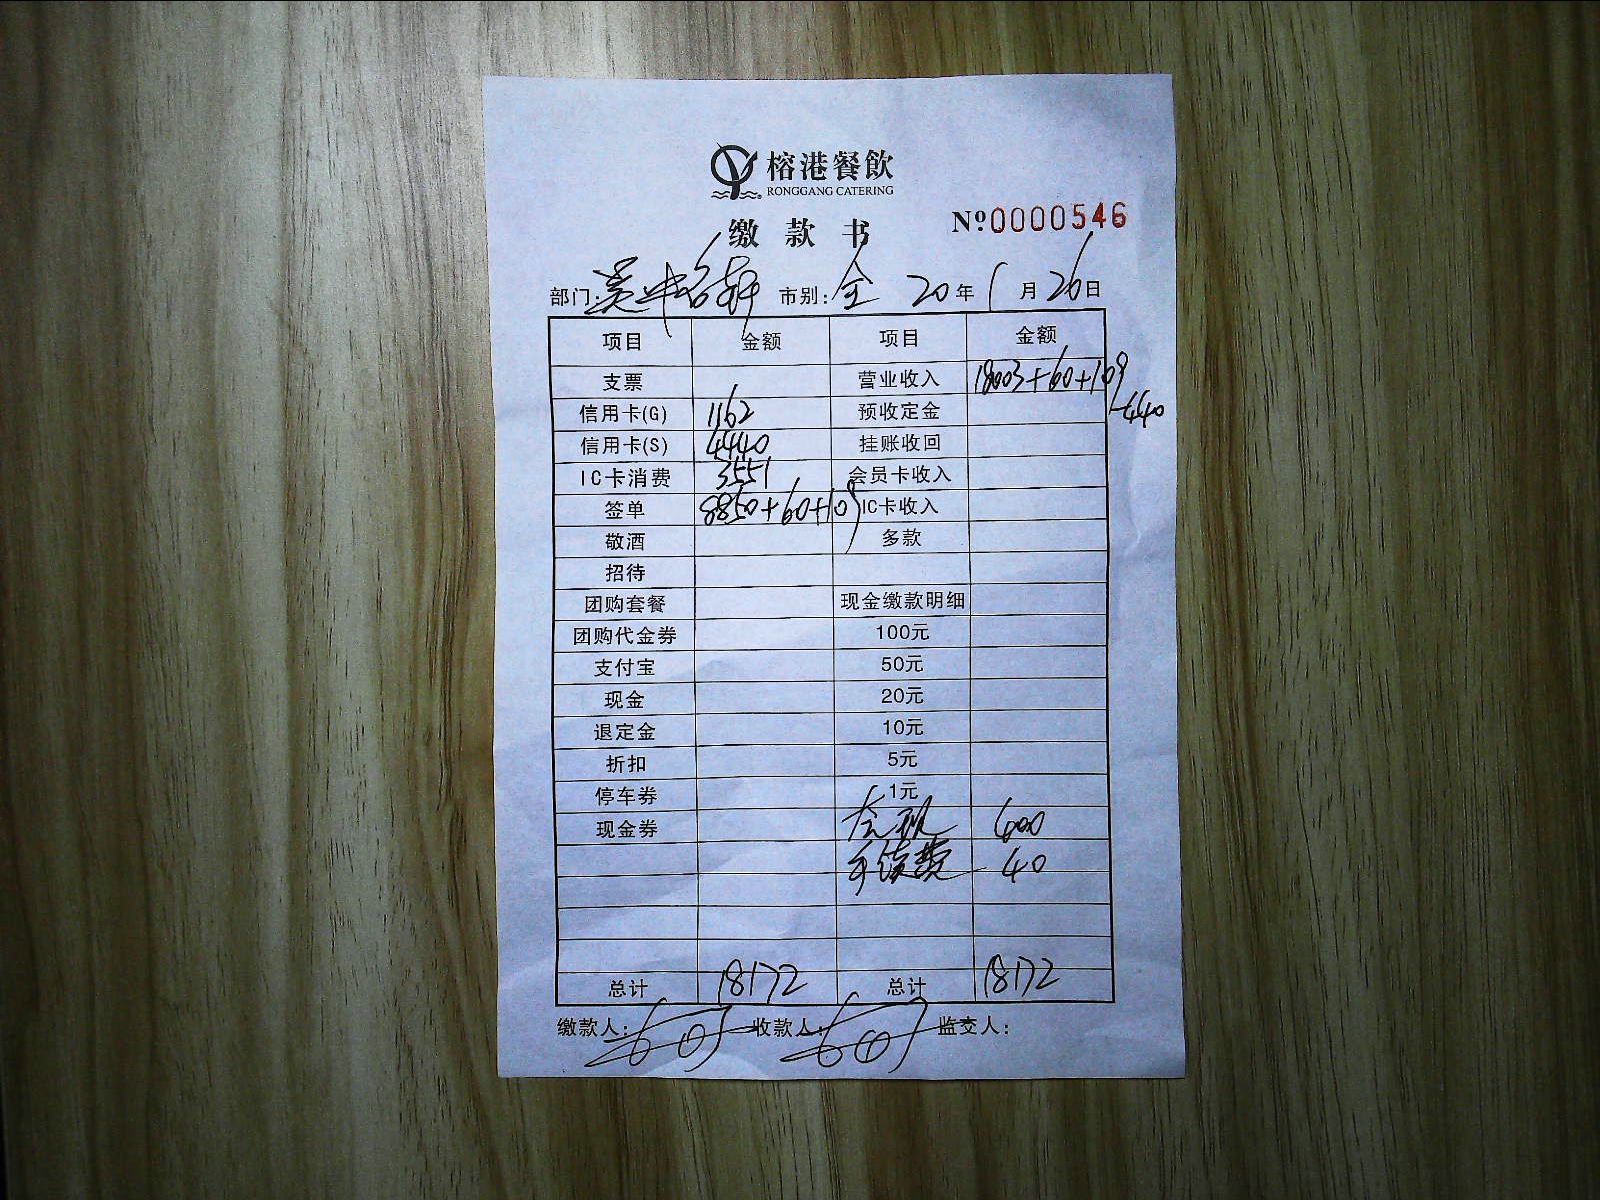 榕港餐飲
RONGGANG CATERING
缴款书 Nº:0000546
部门: 市别:全 20年1月26日
项目 金额 项目 金额
支票 营业收入 18003+60+109
信用卡(G) 1162 预收定金 -440
信用卡(S) 4440 挂账收回
IC卡消费 3551 会员卡收入
签单 8850+60+109 IC卡收入
敬酒 多款
招待
团购套餐 现金缴款明细
团购代金券 100元
支付宝 50元
现金 20元
退定金 10元
折扣 5元
停车券 1元
现金券
手续费 40
总计 18172 总计 18172
缴款人: 收款人: 监交人: